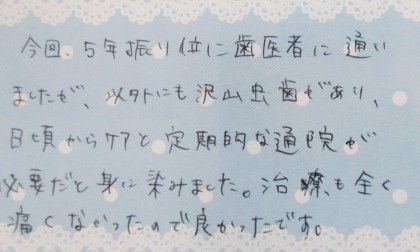 今回、5年振り位に歯医者に通い
ましたが、以外にも沢山虫歯があり、
日頃からケアと定期的な通院が
必要だと身に染みました。治療も全く
痛くなかったので良かったです。